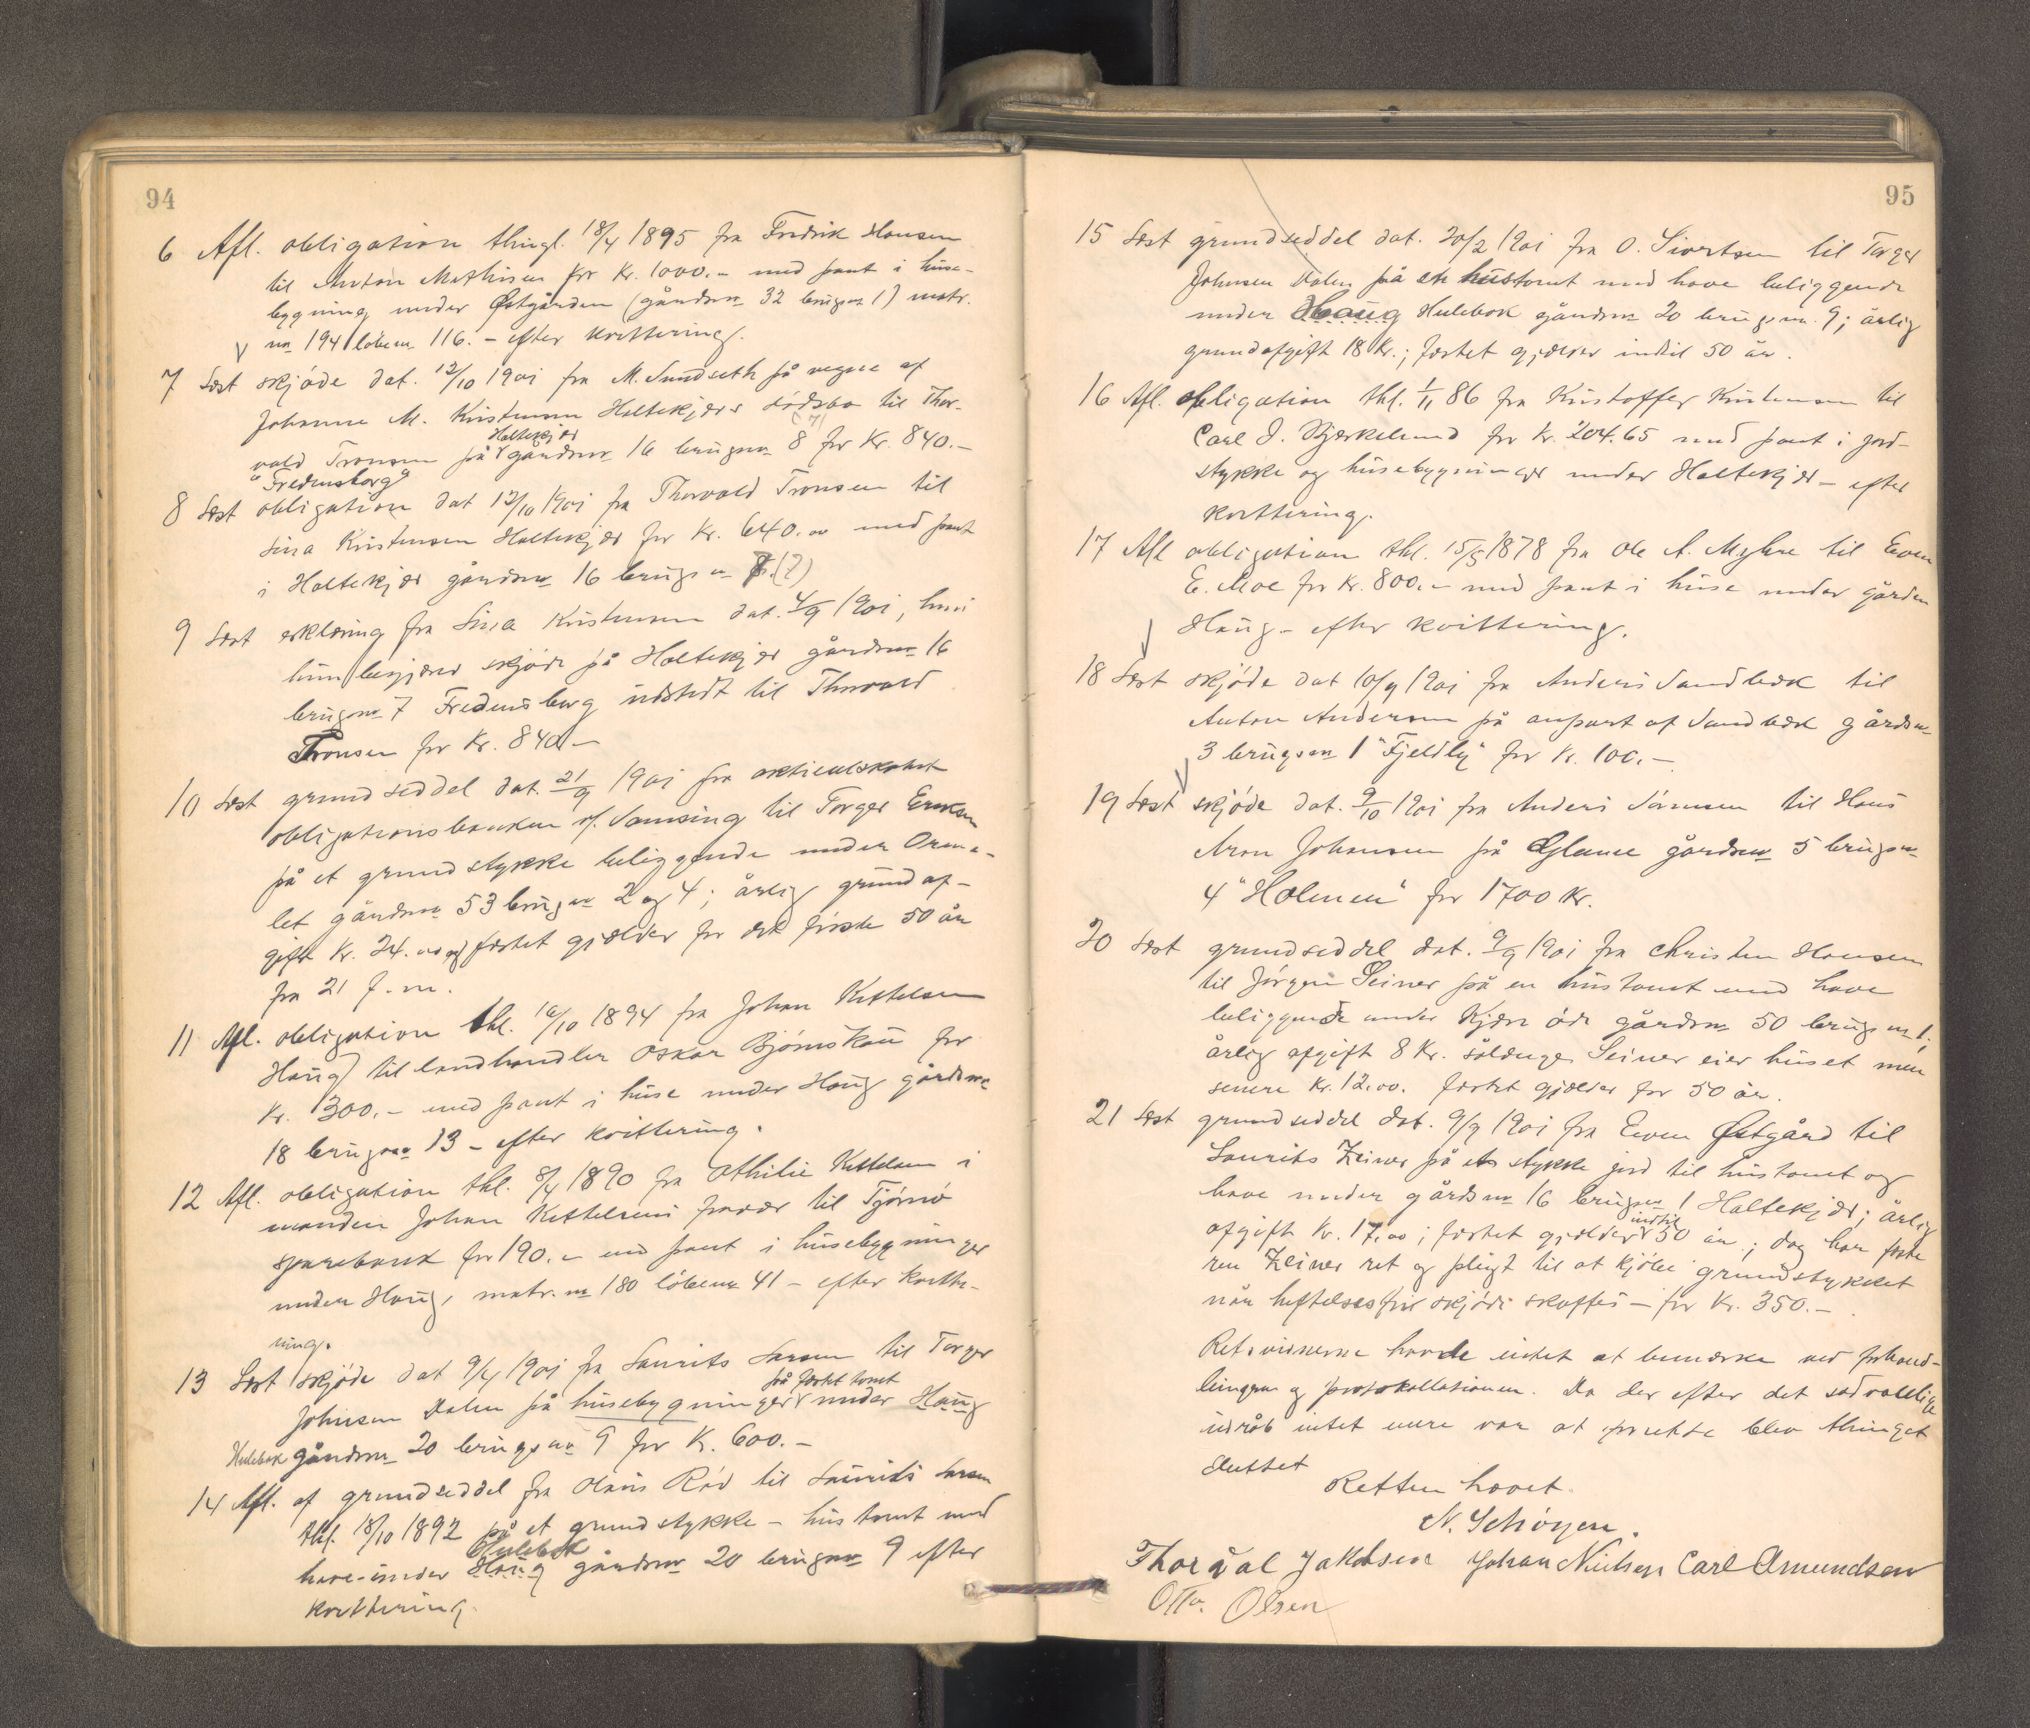 94
6 Afl. obligation thingl. 18/4 1895 fra Fredrik Hansen
til Anton Mathisen for Kr. 1000.- med pant i huse-
bygning under Østgården (gårdsnr 32 brugsnr 1) matr.
nr 194 løbenr 116. - efter kvittering.
7 Læst skjøde dat. 12/10 1901 fra M. Sundseth på vegne af
Johanne M. Kristensen Holtekjærs dødsbo til Thor-
vald Tronsen på Holtekjær gårdsnr 16 brugsnr 8 (7) for Kr. 840.-
"Fredensborg"
8 Læst obligation dat 12/10 1901 fra Thorvald Tronsen til
Lina Kristensen Holtekjær for Kr. 640.00 med pant
i Holtekjær gårdsnr 16 brugsnr 8. (7)
9 Læst erklæring fra Lina Kristensen dat. 4/9 1901, hvori
hun begjærer skjøde på Holtekjær gårdsnr 16
brugsnr 7 Fredensborg udstedt til Thorvald
Tronsen for Kr. 840 -
10 Læst grundseddel dat. 21/9 1901 fra
obligationsbanken v/. Samsing til Torger Eriksen
på et grundstykke beliggende under Orme-
let gårdsnr 53 brugsnr 2 og 4; årlig grundaf-
gift Kr. 24.00 og fæstet gjælder for det første 50 år
fra 21 f. m.
11 Afl. obligation thl. 16/10 1894 fra Johan Kettelsen
Haug til landhandler Oskar Bjørnskau for
Kr. 300.- med pant i huse under Haug gårdsnr
18 brugsnr 13 - efter kvittering.
12 Afl. obligation thl. 8/4 1890 fra Othilie Kettelsen i
manden Johan Kettelsens fravær til Tjømø
sparebank for 190.- med pant i husebygninger
under Haug, matr. nr 180 løbenr 41 - efter kvitte-
ring.
13 Læst skjøde dat 9/4 1901 fra Laurits Larsen til Torger
Johnsen Dalen på husebygninger på fæstet tomt under Haug
Hulebak gårdsnr 20 brugsnr 9 for Kr. 600.-
14 Afl. af grundseddel fra Olaus Rød til Laurits Larsen
thl. 18/10 1892 på et grundstykke - hustomt med
have - under Haug Hulebak gårdsnr 20 brugsnr 9 efter
kvittering.
95
15 Læst grundseddel dat. 20/2 1901 fra O. Sivertsen til Torger
Johnsen Dalen på en hustomt med have beliggende
under Haug Hulebak gårdsnr 20 brugsnr. 9; årlig
grundafgift 18 Kr.; fæstet gjælder indtil 50 år.
16 Afl. obligation thl. 1/11 86 fra Kristoffer Kristensen til
Carl J. Bjerkelund for Kr. 204.65 med pant i jord-
stykke og husebygninger under Holtekjær - efter
kvittering.
17 Afl obligation thl. 15/5 1878 fra Ole A. Myhre til Even
E. Moe for Kr. 800.- med pant i huse under gården
Haug - efter kvittering.
18 Læst skjøde dat 10/9 1901 fra Anders Sandbæk til
Anton Andersen på anpart af Sandbæk gårdsnr
3 brugsnr 1 "Fjeldly" for Kr. 100.-
19 Læst skjøde dat. 9/10 1901 fra Anders Sørensen til Hans
Aron Johansen på Glame gårdsnr 5 brugsnr
4 "Holmen" for 1700 Kr.
20 Læst grundseddel dat. 9/9 1901 fra Christen Hansen
til Jørgen Seiner på en hustomt med have
beliggende under Kjære øde gårdsnr 50 brugsnr 1;
årlig afgift 8 Kr. sålænge Seiner eier huset men
senere Kr. 12.00. fæstet gjælder for 50 år.
21 Læst grundseddel dat. 9/9 1901 fra Even Østgård til
Laurits Zeiner på et stykke jord til hustomt og
have under gårdsnr 16 brugsnr 1 Holtekjær; årlig
afgift Kr. 17.00; fæstet gjælder indtil 50 år; dog har fæste
ren Zeiner ret og pligt til at kjøbe grundstykket
når heftelsesfrit skjøde skaffes - for Kr. 350.-
Retsvidnerne havde intet at bemærke ved forhand-
lingen og protokollationen. Da der efter det sædvanlige
udråb intet mere var at foretage blev thinget
sluttet
Retten hævet.
N. Schøyen.
Thorval Jakobsen Johan Nielsen Carl Amundsen
Otto Olsen